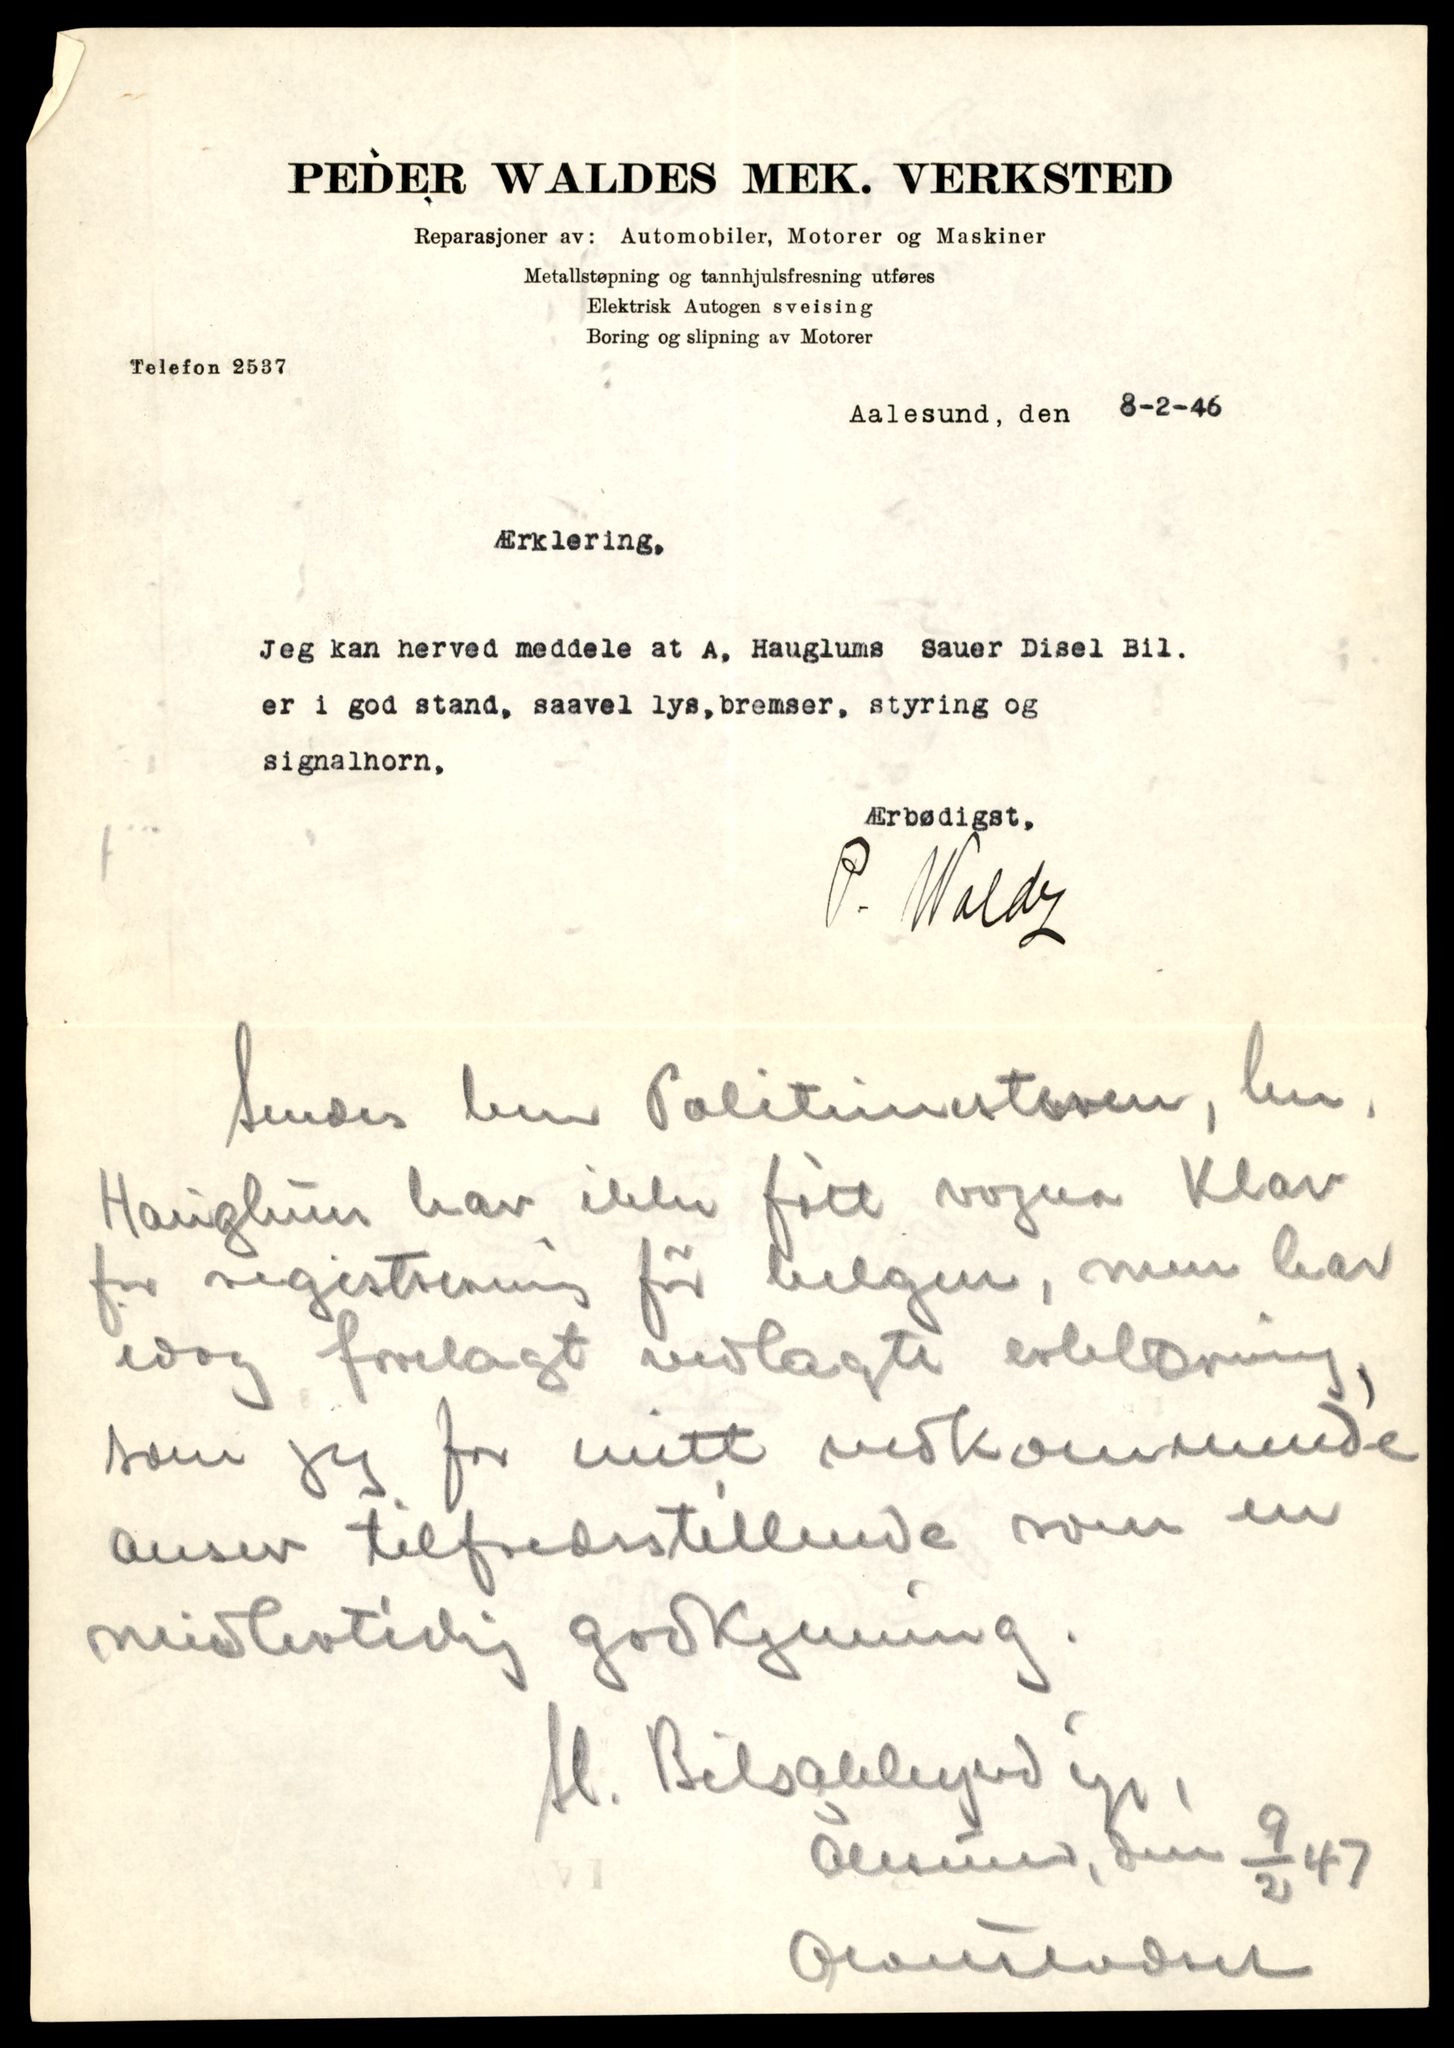 PEDER WALDES MEK. VERKSTED
Reparasjoner av: Automobiler, Motorer og Maskiner
Metallstøpning og tannhjulsfresning utføres
Elektrisk Autogen sveising
Boring og slipning av Motorer
Telefon 2537
Aalesund, den 8-2-46
Ærklering,
Jeg kan herved meddele at A, Hauglums Sauer Disel Bil.
er i god stand, saavel lys,bremser, styring og
signalhorn,
Ærbødigst,
P. Waldes
Sendes herr Politimesteren, her.
Hauglum har ikke fått vogna klar
for registrering för helgen, men har
idag forelagt vedlagte erklæring,
som jeg for mitt vedkommende
anser tilfredsstillende som en
midlertidig godkjenning.
St. Bilsakkyndige,
Ålesund, den 9/2 47